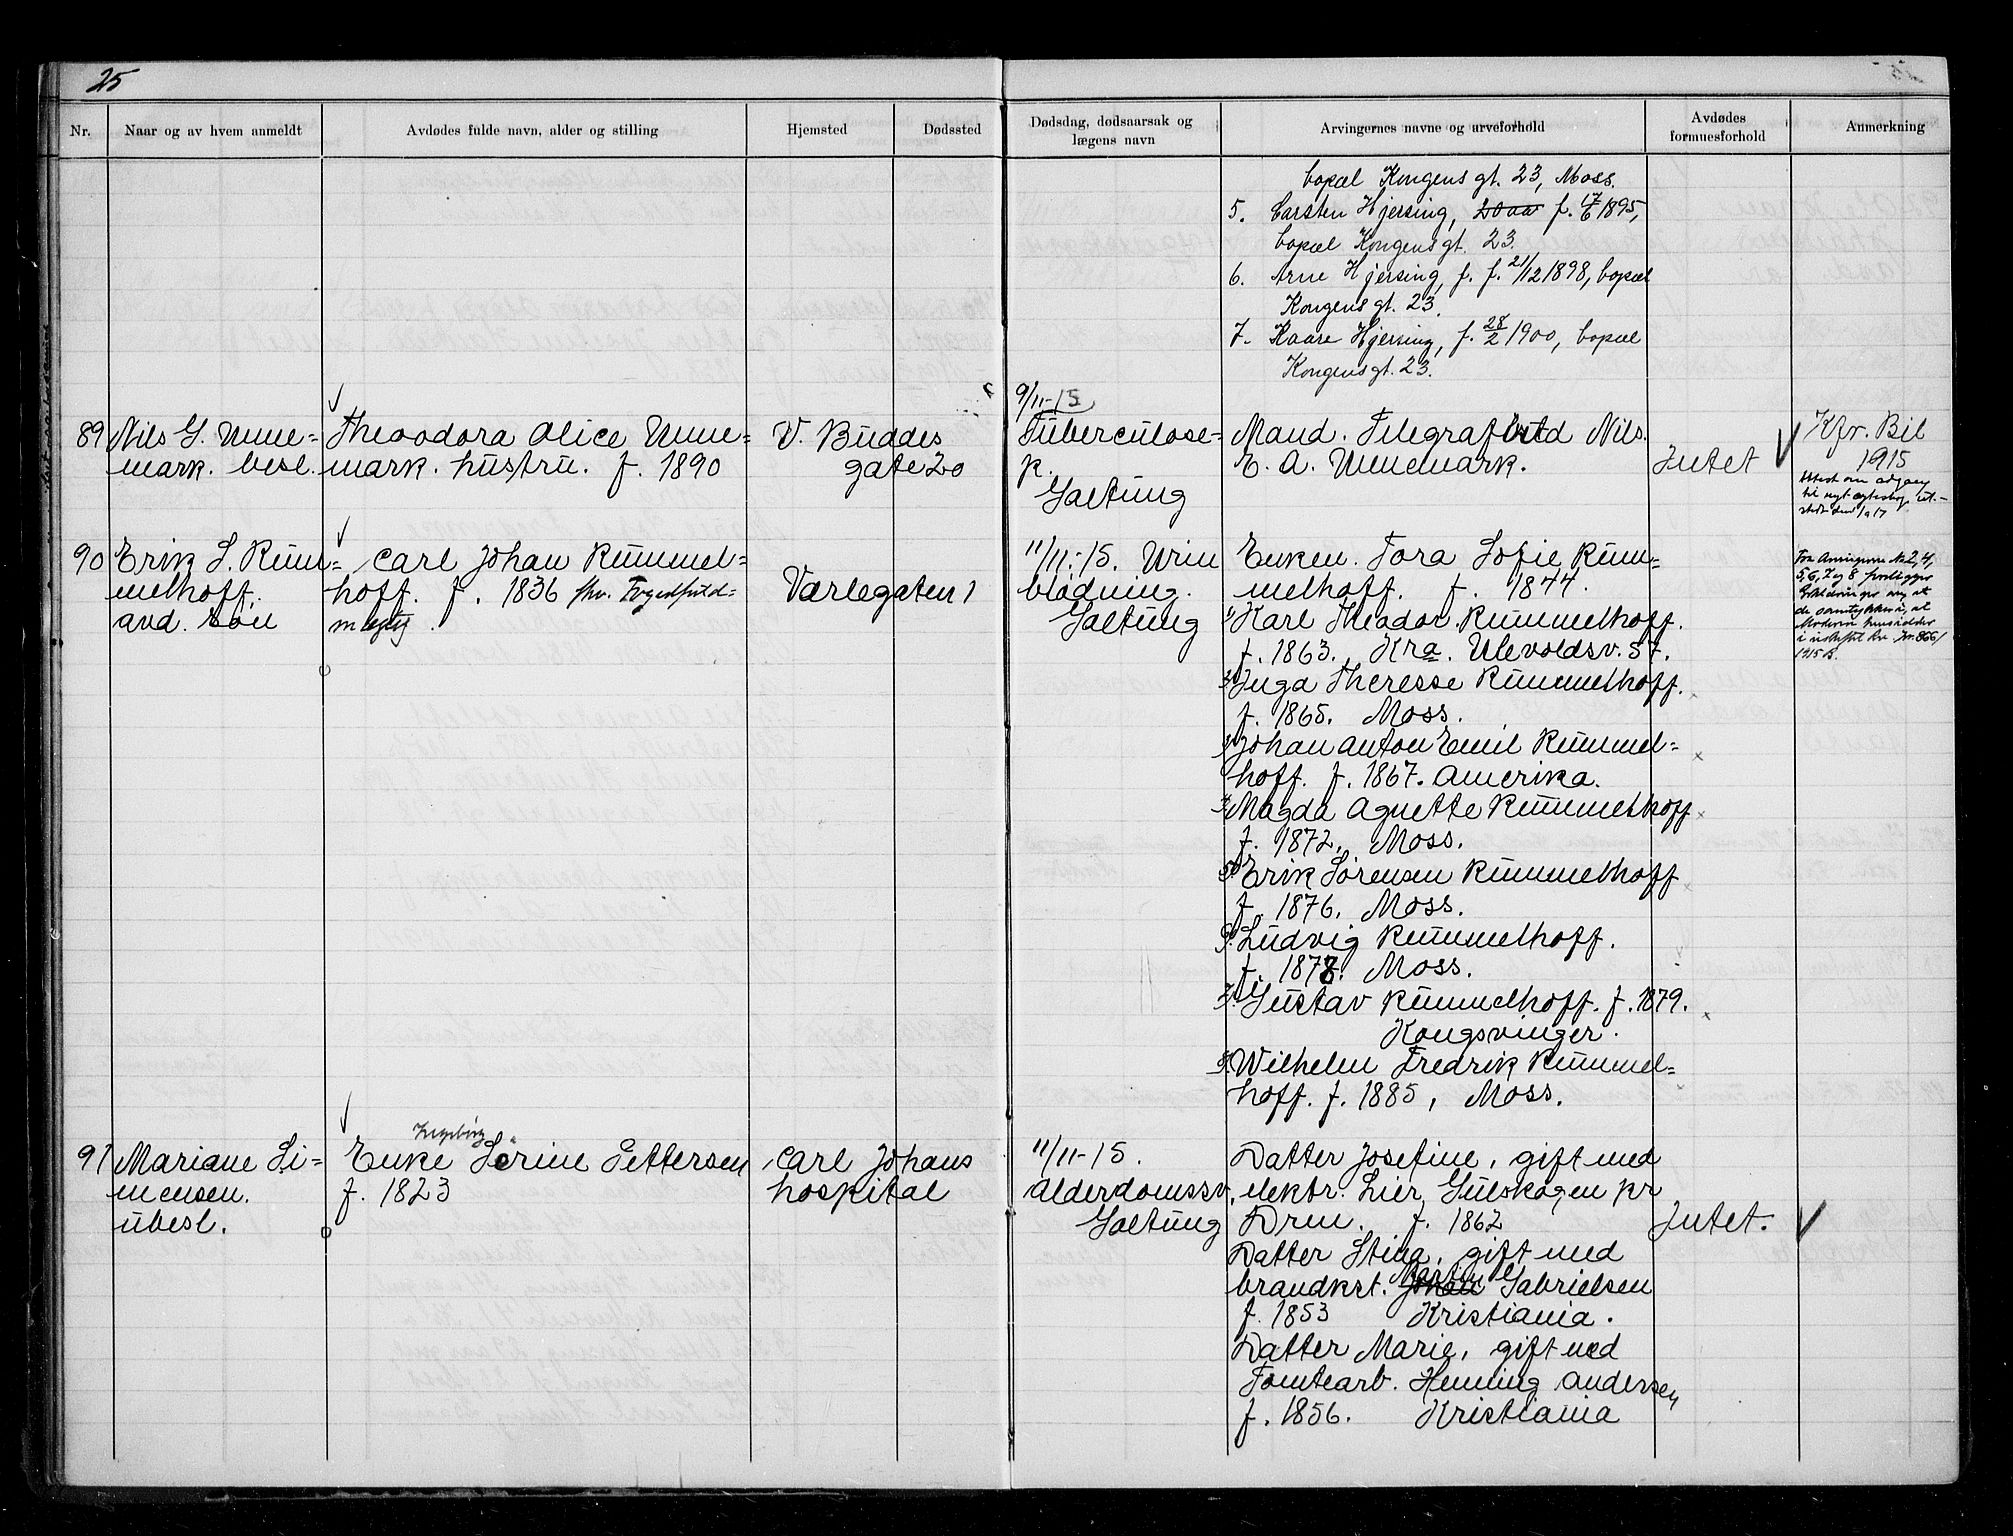 25
Nr.
Naar og av hvem anmeldt
Avdødes fulde navn, alder og stilling
Hjemsted
Dødssted
Dødsdag, dødsaarsak og
lægens navn
Arvingernes navne og arveforhold
Avdødes
formuesforhold
Anmerkning
bopæl Kongens gt. 23, Moss.
5. Carsten Hjersing, 20 aar f. 17/6 1895,
bopæl Kongens gt. 23.
6. Arne Hjersing, f. f. 21/12 1898, bopæl
Kongens gt. 23.
7. Kaare Hjersing, f. 28/2 1900, bopæl
Kongens gt. 23.
89
Nils G. Unne=
mark. besl.
Theodora Alice Unne=
mark. hustru. f. 1890
V. Buddes
gate 20
9/11-15
Tuberculose-
p.
Galtung
Mand. Telegrafist Nils
E. A. Unnemark.
Intet
Kfr. Bil
1915
Attest om adgang
til nyt egteskap ut-
stedt 1917
90
Erik S. Rum=
melhoff.
avd. søn
Carl Johan Rummel=
hoff. f. 1836 fhv. Fogedfuld=
mægtig.
Værlegaten 1
11/11.-15. Urin
blødning.
Galtung
Enken. Tora Sofie Rum=
melhoff. f. 1844.
1. Karl Theodor Rummelhoff.
f. 1863. Kra. Ulevoldsv. 57.
2. Inga Theresse Rummelhoff.
f. 1865. Moss.
3. Johan Anton Emil Rummel=
hoff. f. 1867. Amerika.
4. Magda Agnette Rummelhoff
f. 1872. Moss.
5. Erik Sørensen Rummelhoff
f. 1876. Moss.
6. Ludvig Rummelhoff.
f. 1878. Moss.
7. Gustav Rummelhoff. f. 1879.
Kongsvinger.
8. Wilhelm Fredrik Rummel=
hoff. f. 1885, Moss.
Fra Arvingerne No 2, 4,
5, 6, 7 og 8 foreligger
erklæringer om at
de samtykker i, at
Moderen hensidder
i uskiftet bo. Jnr. 866/
1915 B.
91
Mariane Si=
mensen.
ubesl.
Ingeborg
Enke Serine Pettersen
f. 1823
Carl Johans
hospital
11/11-15.
Alderdomssv.
Galtung
Datter Josefine, gift med
elektr. Lier, Gulskogen pr
Drm. f. 1862
Datter Stina, gift med
brandkst. Johan Martin Gabrielsen
f. 1853 Kristiania.
Datter Marie, gift med
Tomtearb. Henning Andersen
f. 1856. Kristiania
Intet.